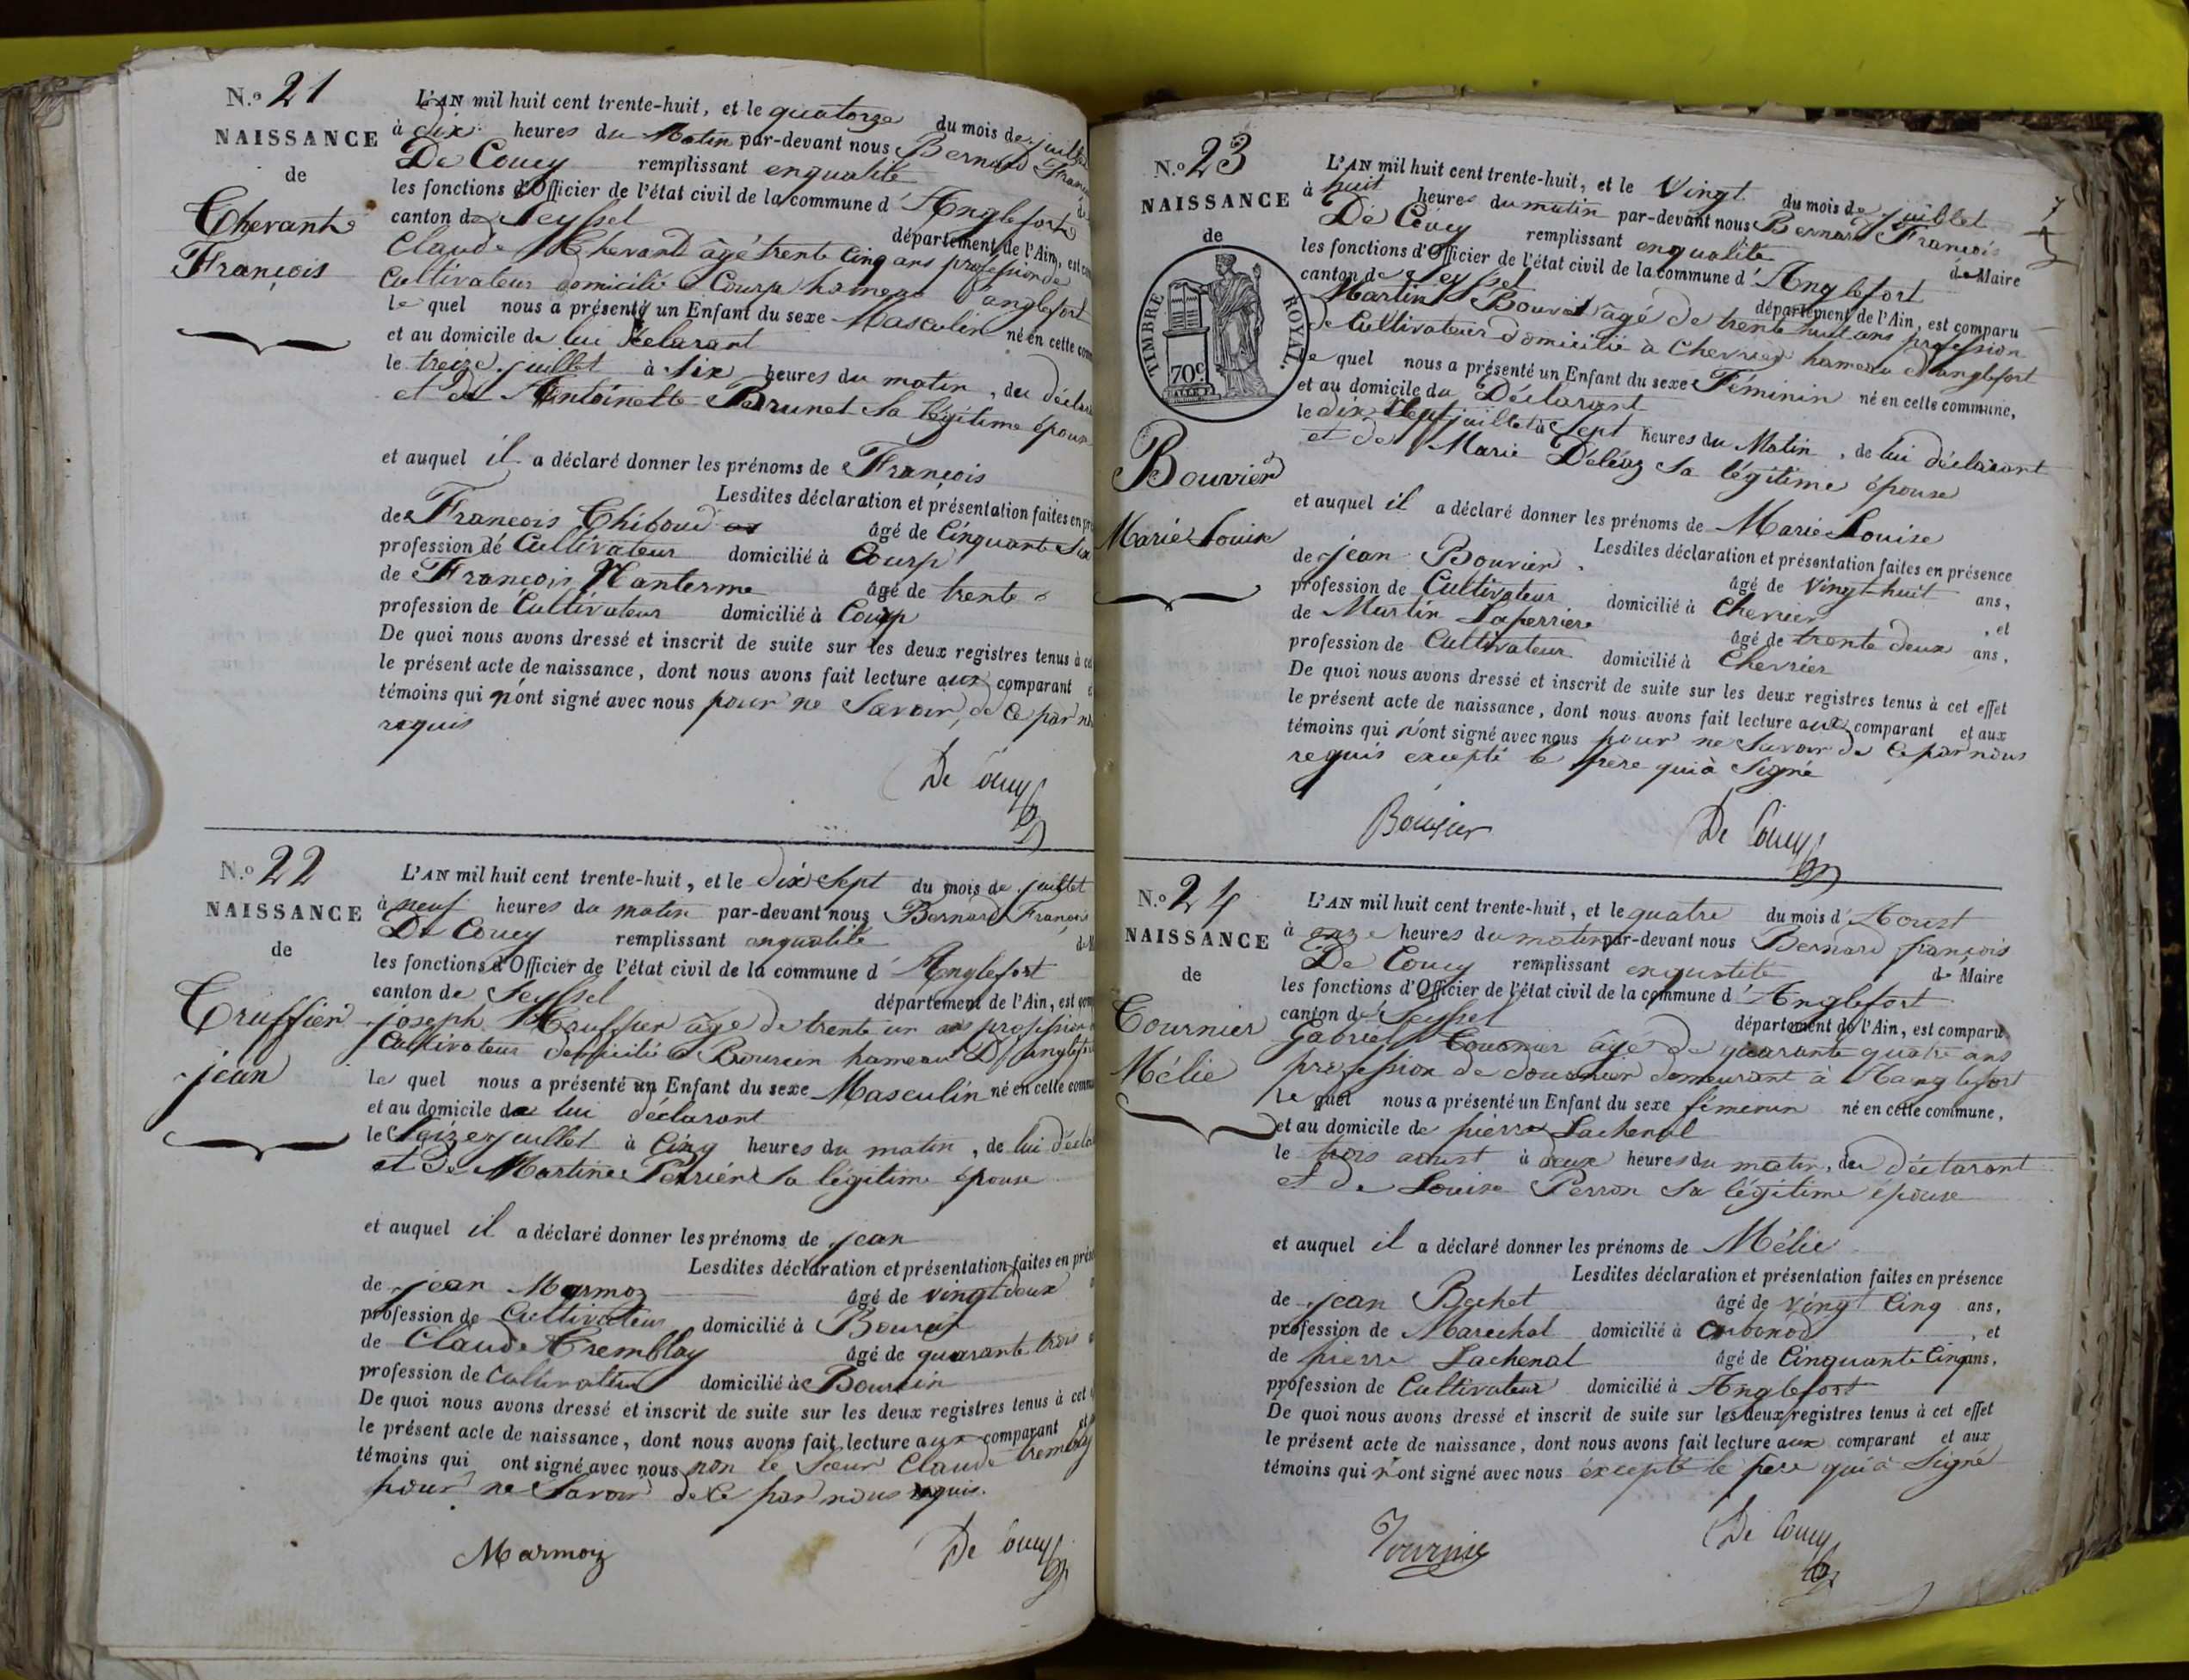 N.o 21
NAISSANCE
de
Chevant
François
L'AN mil huit cent trente-huit, et le quatorze du mois de juillet
à dix heures du Matin par-devant nous Bernard Fran
De Coucy remplissant enqualité
les fonctions d'Officier de l'état civil de la commune d'Anglefort
canton de Seyssel département de l'Ain, est com
Claude Chevant âgé trente cinq ans profession de
Cultivateur domicilié à Courp hameau d'anglefort
le quel nous a présenté un Enfant du sexe Masculin né en cette com
et au domicile de lui déclarant
le treize juillet à Six heures du matin, du décla
et de Antoinette Brunet Sa légitime épouse
et auquel il a déclaré donner les prénoms de François
Lesdites déclaration et présentation faites en pr
de François Chiboud âgé de Cinquante Six
profession de Cultivateur domicilié à Courp
de François Nanterme âgé de trente
profession de Cultivateur domicilié à Courp
De quoi nous avons dressé et inscrit de suite sur les deux registres tenus à ce
le présent acte de naissance, dont nous avons fait lecture aux comparant e
témoins qui n'ont signé avec nous pour ne Savoir de ce par n
requis
De Coucy
N.o 22
NAISSANCE
de
Truffier
jean
L'AN mil huit cent trente-huit, et le dix Sept du mois de juillet
à neuf heures du matin par-devant nous Bernard François
De Coucy remplissant enqualité de M
les fonctions d'Officier de l'état civil de la commune d'Anglefort
canton de Seyssel département de l'Ain, est com
joseph Truffier âgé de trente un ans profession
Cultivateur domicilié à Boursin hameau D'anglefo
le quel nous a présenté un Enfant du sexe Masculin né en cette comm
et au domicile de lui déclarant
le Seize juillet à Cinq heures du matin, de lui décla
et de Martine Perrier Sa légitime épouse
et auquel il a déclaré donner les prénoms de jean
Lesdites déclaration et présentation faites en prés
de jean Marmoz âgé de vingt deux
profession de Cultivateur domicilié à Boursin
de Claude Tremblay âgé de quarante trois
profession de Cultivateur domicilié à Boursin
De quoi nous avons dressé et inscrit de suite sur les deux registres tenus à cet
le présent acte de naissance, dont nous avons fait lecture aux comparant et
témoins qui ont signé avec nous non le Sieur Claude tremblay
pour ne Savoir de Ce par nous requis.
Marmoz De Coucy
N.o 23
NAISSANCE
de
TIMBRE ROYAL.
70c
Bouvier
Marie Louise
L'AN mil huit cent trente-huit, et le Vingt du mois de juillet
à huit heures du matin par-devant nous Bernard François
De Coucy remplissant enqualité de Maire
les fonctions d'Officier de l'état civil de la commune d'Anglefort
canton de Seyssel département de l'Ain, est comparu
Martin Bouvier âgé de trente huit ans profession
de Cultivateur domicilié à Chevrier hameau d'anglefort
le quel nous a présenté un Enfant du sexe Féminin né en cette commune,
et au domicile du Déclarant
le dix Neuf juillet à Sept heures du Matin, de lui déclarant
et de Marie Déléaz Sa légitime épouse
et auquel il a déclaré donner les prénoms de Marie Louise
Lesdites déclaration et présentation faites en présence
de jean Bouvier âgé de vingt-huit ans,
profession de Cultivateur domicilié à Chevrier, et
de Martin Laperrière âgé de trente deux ans,
profession de Cultivateur domicilié à Chevrier
De quoi nous avons dressé et inscrit de suite sur les deux registres tenus à cet effet
le présent acte de naissance, dont nous avons fait lecture aux comparant et aux
témoins qui n'ont signé avec nous pour ne Savoir de Ce par nous
requis excepté le pere qui à Signé
Bouvier De Coucy
N.o 24
NAISSANCE
de
Tournier
Mélie
L'AN mil huit cent trente-huit, et le quatre du mois d'Aoust
à onze heures du matin par-devant nous Bernard françois
De Coucy remplissant enqualité de Maire
les fonctions d'Officier de l'état civil de la commune d'Anglefort
canton de Seyssel département de l'Ain, est comparu
Gabriel Tournier âgé de quarante quatre ans
profession de douanier demeurant à anglefort
le quel nous a présenté un Enfant du sexe féminin né en cette commune,
et au domicile de pierre Lachenal
le trois aoust à deux heures du matin, du déclarant
et de Louise Perron Sa légitime épouse
et auquel il a déclaré donner les prénoms de Mélie
Lesdites déclaration et présentation faites en présence
de jean Bachet âgé de vingt Cinq ans,
profession de Marechal domicilié à Corbonod, et
de pierre Lachenal âgé de Cinquante Cinq ans,
profession de Cultivateur domicilié à Anglefort
De quoi nous avons dressé et inscrit de suite sur les deux registres tenus à cet effet
le présent acte de naissance, dont nous avons fait lecture aux comparant et aux
témoins qui n'ont signé avec nous excepté le pere qui à Signé
Tournier De Coucy